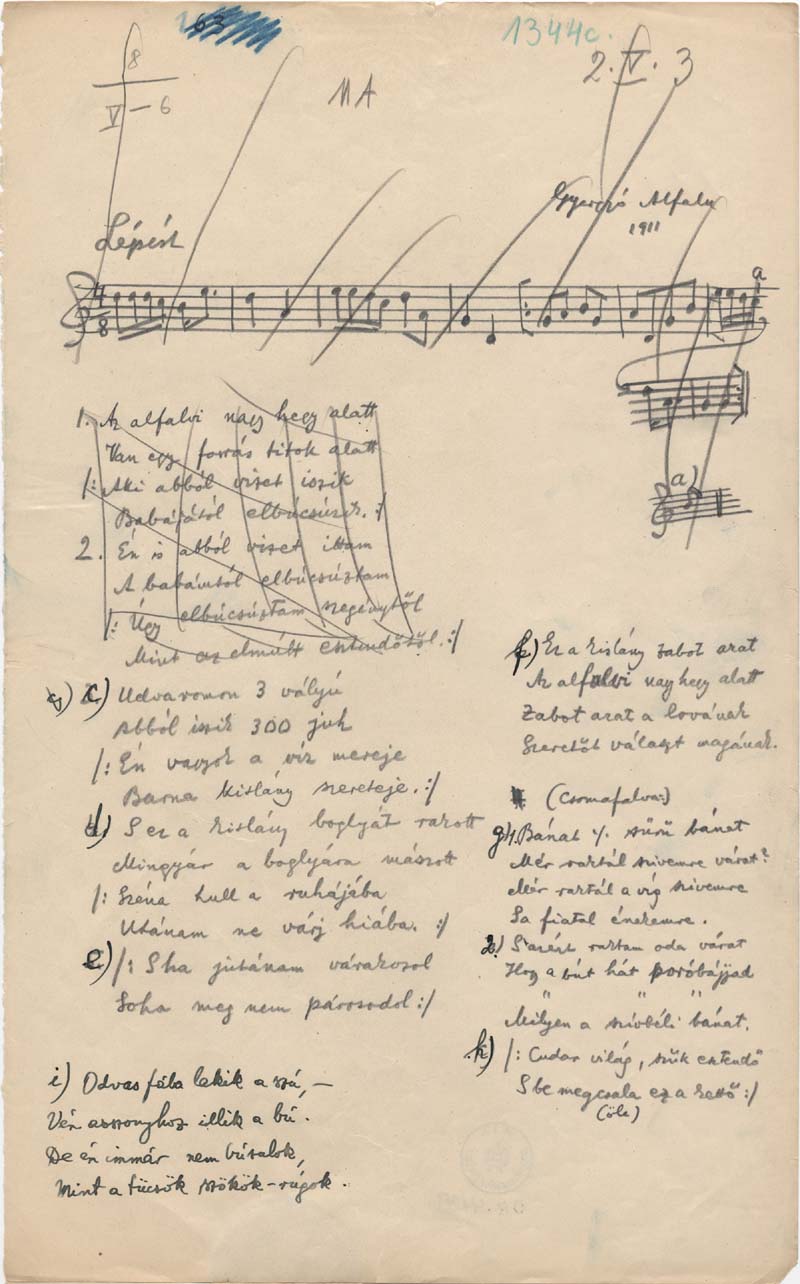 63
1344c.
8
V - 6
MA
2. V. 3
Gyergyó Alfalu
1911
Lépést
4
8
a
a)
1. Az alfalvi nagy hegy alatt
Van egy forrás titok alatt
/: Aki abból vizet iszik
Babájától elbúcsúzik. :/
2. Én is abból vizet ittam
A babámtól elbúcsúztam
/: Úgy elbúcsúztam szegénytől
Mint az elmúlt esztendőtől. :/
c) Udvaromon 3 vályú
Abból iszik 300 juh
/: Én vagyok a víz mereje
Barna kislány szereteje. :/
d) S ez a kislány boglyát rakott
Mingyár a boglyára mászott
/: Széna hull a ruhájába
Utánam ne várj hiába. :/
e) /: S ha jutánam várakozol
Soha meg nem párosodol :/
i) Odvas fába lakik a szú, —
Vén asszonyhoz illik a bú.
De én immár nem búsulok,
Mint a tücsök szökök-rúgok.
f) Ez a kislány zabot arat
Az alfalvi nagy hegy alatt
Zabot arat a lovának
Szeretőt választ magának.
(Csomafalva:)
g) 1. Bánat %. sűrű bánat
Mér raktál szivemre várat?
Mér raktál a víg szivemre
Sa fiatal énekemre.
2. S azért raktam oda várat
Hogy a bút hát poróbájjad
" " "
Milyen a szívbéli bánat.
k) /: Cudar világ, szűk esztendő
S be megcsala ez a kettő :/
(öle)